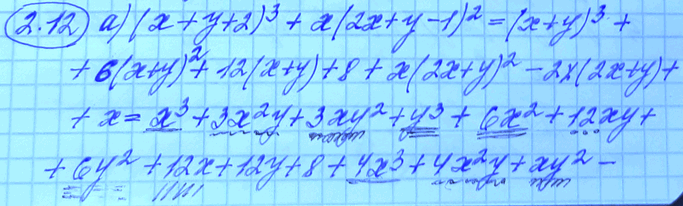 2.12 а) (x+y+2)³ + x(2x+y-1)² = (x+y)³ +
+ 6(x+y)² + 12(x+y) + 8 + x(2x+y)² - 2x(2x+y) +
+ x = x³ + 3x²y + 3xy² + y³ + 6x² + 12xy +
+ 6y² + 12x + 12y + 8 + 4x³ + 4x²y + xy² -